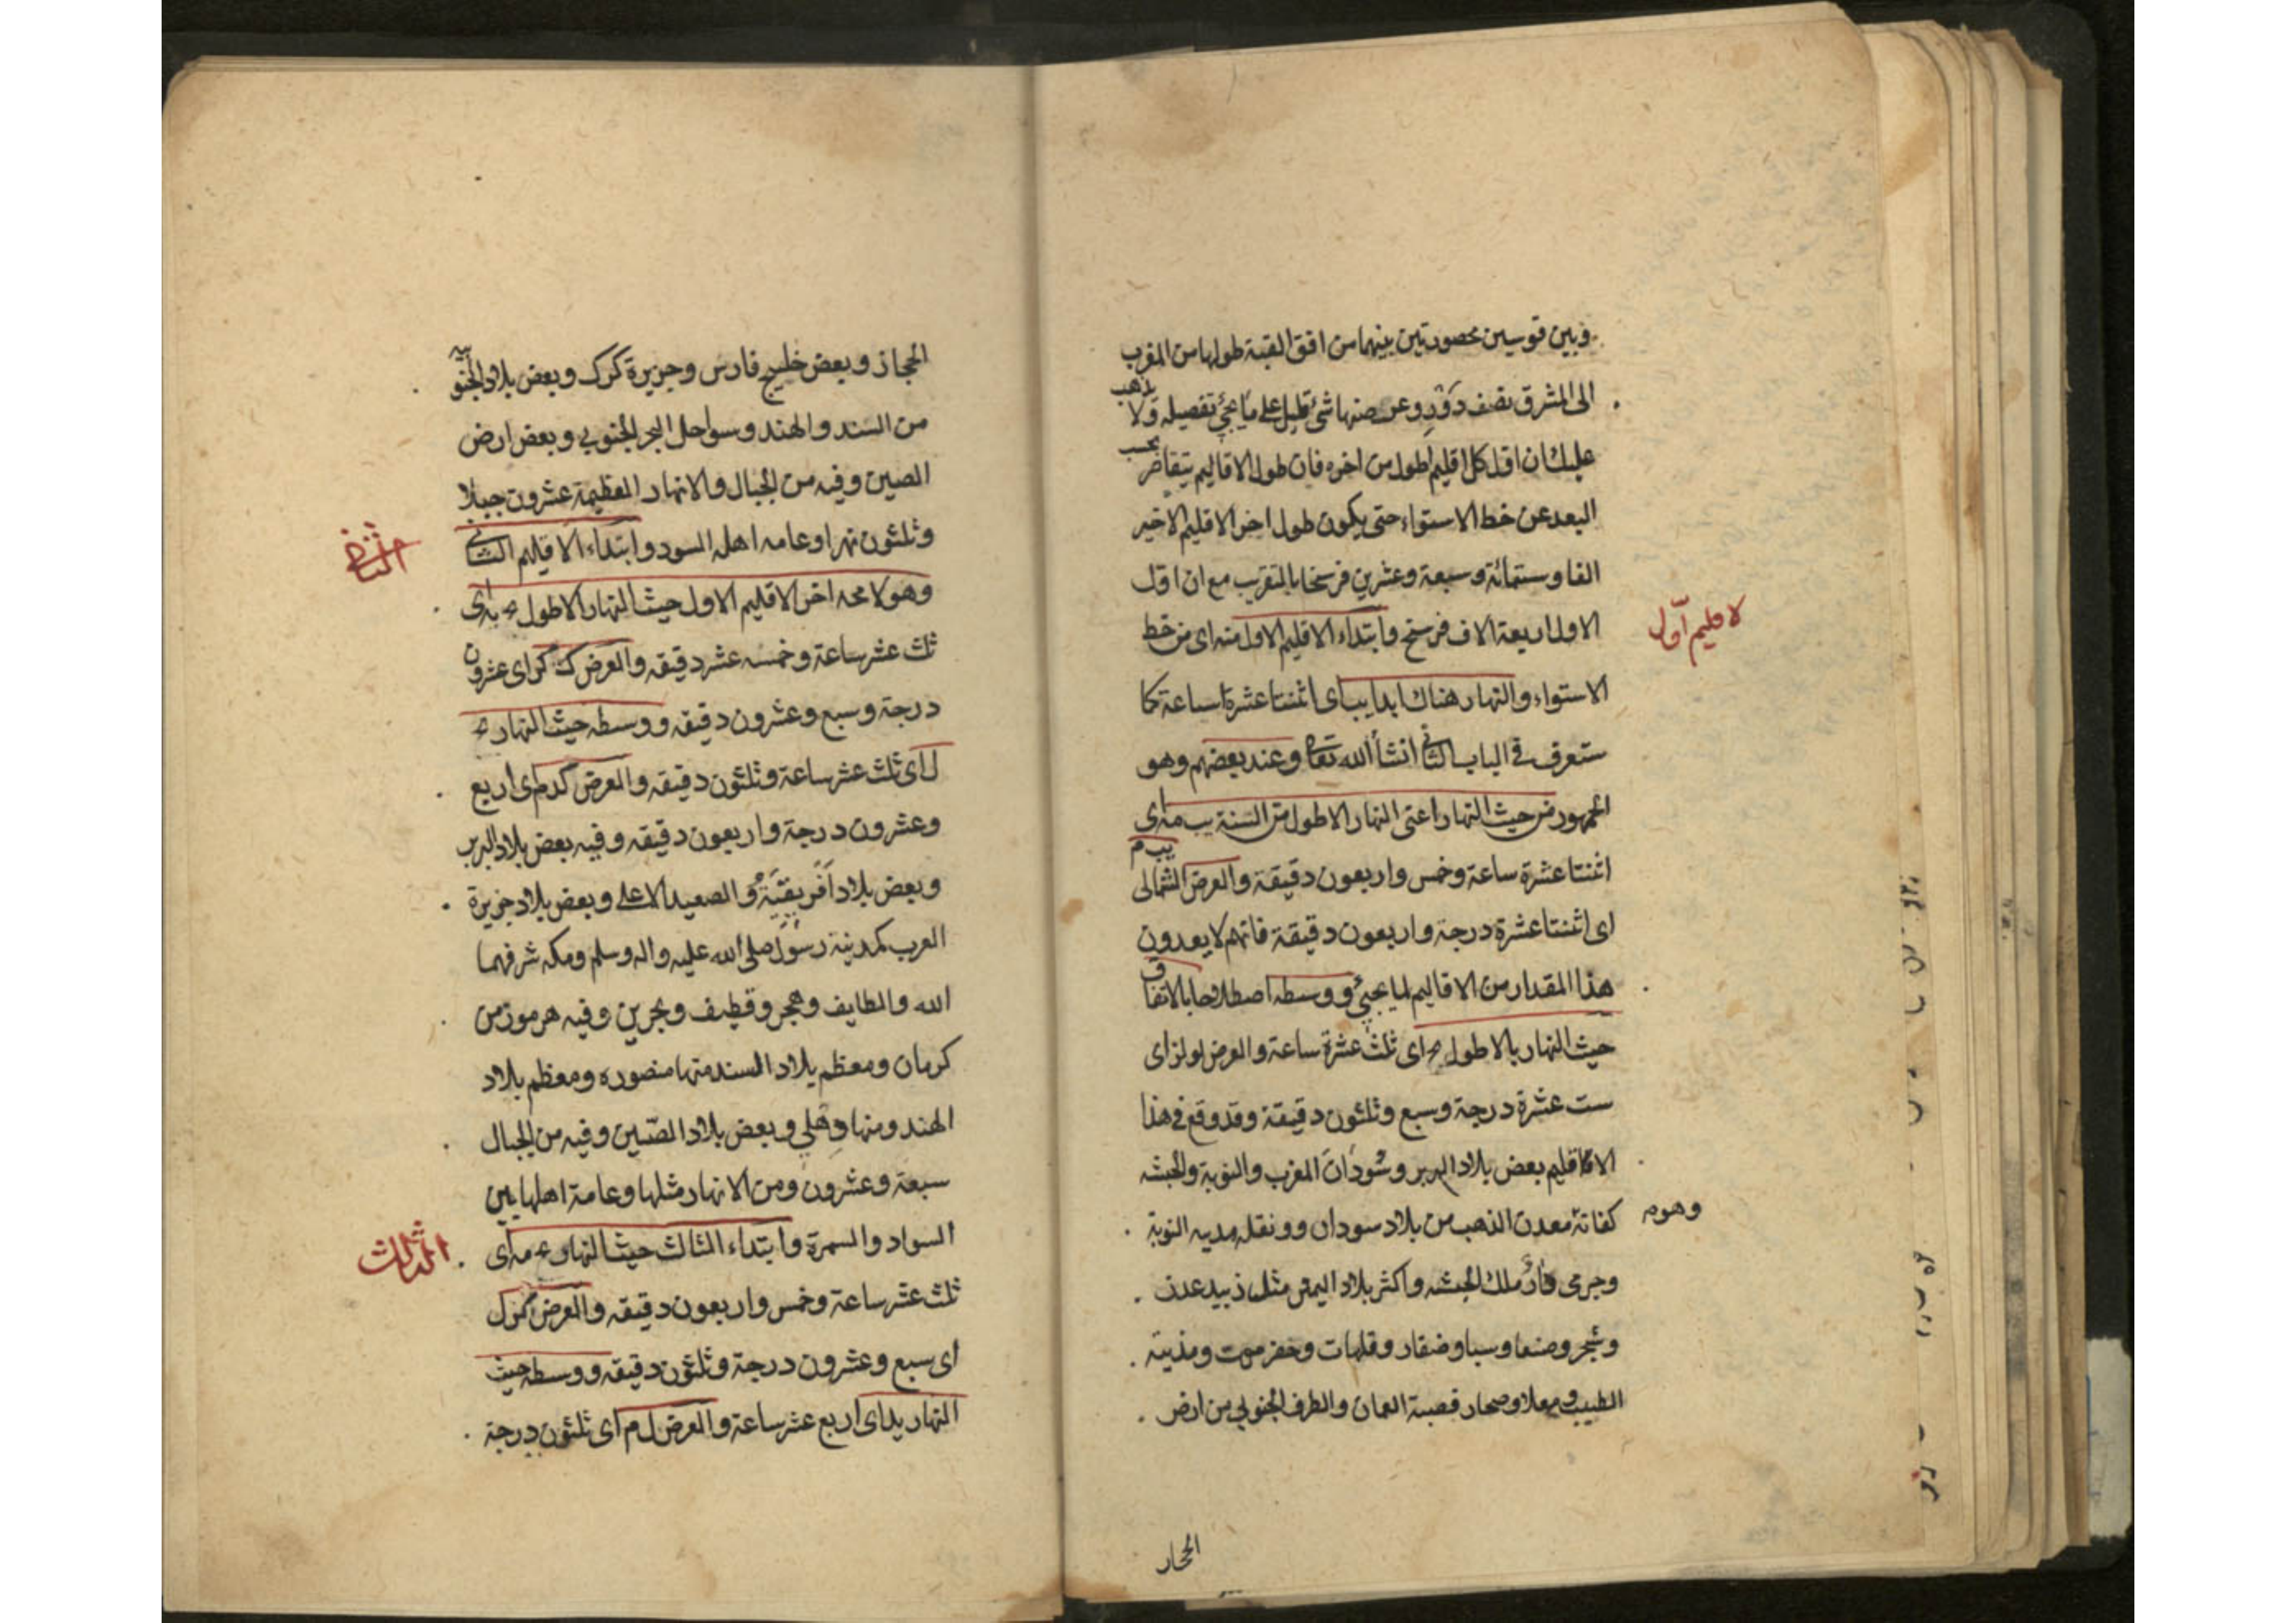 وبين قوسين محصورتين بينهما من افق القبة طولها من المغرب
الى المشرق نصف دَوْرٍ وعرضها شئ قليل على ما يجئ تفصيله ولا يذهب
عليك ان اول كل اقليم اطول من اخره فان طول الاقاليم يتقاصر بحسب
البعد عن خط الاستواء حتى يكون طول اخر الاقليم الاخير
الفا وستمائة وسبعة وعشرين فرسخا بالتقريب مع ان اول
الاول اربعة الاف فرسخ وابتداء الاقليم الاول منه اى من خط
لاقليم آول
الاستواء والنهار هناك ابدا يب اى اثنتا عشرة ساعة كما
ستعرف فى الباب الثانى انشأ الله تعا وعند بعضهم وهو
الجمهور من حيث النهار اعنى النهار الاطول من السنة يب مه اى
اثنتا عشرة ساعة وخمس واربعون دقيقة والعرض الشمالى يب م
اى اثنتا عشرة درجة واربعون دقيقة فانهم لا يعدون
هذا المقدار من الاقاليم لما يجئ ووسطه اصطلاحا بالاتفاق
حيث النهار بالاطول يج اى ثلث عشرة ساعة والعرض لو لز اى
ست عشرة درجة وسبع وثلثون دقيقة وقد وقع فى هذا
الاقاقليم بعض بلاد البربر وسُودَان المغرب والنوبة والحبشه
وهوم
كفانة معدن الذهب من بلاد سودان وونقله مديه النوبة
وجرمى ملك الحبشه واكثر بلاد اليمن مثل ذبيد عدن
وشجر وصنعا وسبا وضقار وقلهات وحضرموت ومذينة
الطيب ومعلا وصحار قصبة العمان والطرف الجنوبى من ارض
الحجار
الحجاز وبعض خليج فارس وجزيرة كرك وبعض بلاد الجنوبيه
من السند والهند وسواحل البحر الجنوبى وبعض ارض
الصين وفيه من الجبال والانهار العظيمة عشرون جبلا
وثلثون نهرا وعامه اهله السود وابتداء الاقليم الثانى
وهو لا محه اخر الاقليم الاول حيث النهار الاطول يج يه اى
ثلث عشر ساعة وخمسه عشر دقيقه والعرض ك كز اى عشرون
درجة وسبع وعشرون دقيقه ووسطه حيث النهار يج
ل اى ثلث عشر ساعة وثلثون دقيقه والعرض كد م اى اربع
وعشرون درجة واربعون دقيقه وفيه بعض بلاد البربر
وبعض بلاد اَفريقيَّة والصعيد الاعلى وبعض بلاد جزيرة
العرب كمدينة رسول صلى الله عليه واله وسلم ومكه شرفهما
الله والطايف وهجر وقطيف وبحرين وفيه هرموز من
كرمان ومعظم بلاد السند منها منصوره ومعظم بلاد
الهند ومنها دهلى وبعض بلاد الصّين وفيه من الجبال
سبعة وعشرون ومن الانهار مثلها وعامة اهلها بين
السواد والسمرة وابتداء الثالث حيث النهار يج مه اى
الثالث
ثلث عشر ساعة وخمس واربعون دقيقه والعرض كز ل
اى سبع وعشرون درجة وثلثون دقيقه ووسطه حيث
النهار يد اى اربع عشر ساعة والعرض ل م اى ثلثون درجة